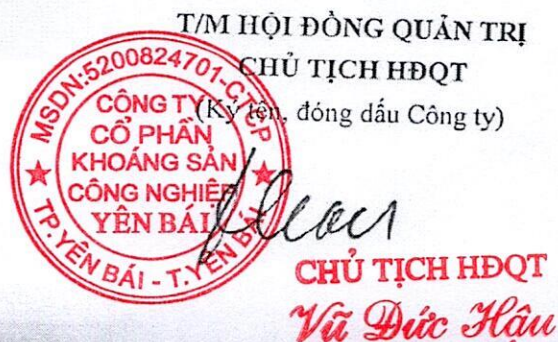 T/M HỘI ĐỒNG QUẢN TRỊ
CHỦ TỊCH HĐQT
(Ký tên, đóng dấu Công ty)
MSDN:5200824701-CTCP
CÔNG TY
CỔ PHẦN
KHOÁNG SẢN
CÔNG NGHIỆP
YÊN BÁI
TP.YÊN BÁI - T.YÊN BÁI
CHỦ TỊCH HĐQT
Vũ Đức Hậu